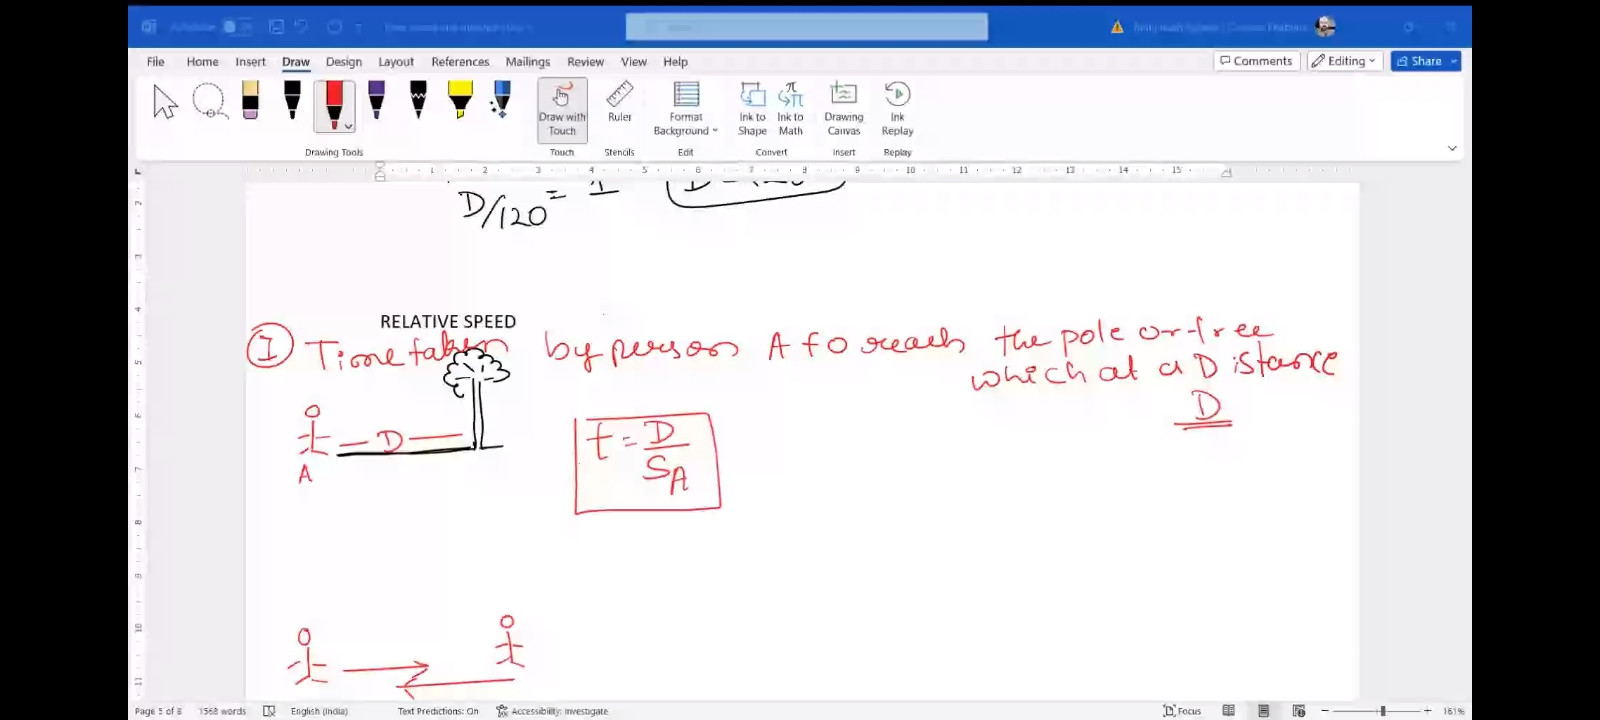 File Home Insert Draw Design Layout References Mailings Review View Help
Comments Editing Share
Draw with Touch Ruler Format Background Ink to Shape Ink to Math Drawing Canvas Ink Replay
Drawing Tools Touch Stencils Edit Convert Insert Replay
1 2 3 4 5 6 7 8 9 10 11 12 13 14 15
D/120 =
RELATIVE SPEED
I Time taken by person A to reach the pole or tree
which at a Distance
D
D
A
t = D
S_A
Page 5 of 8 1568 words English (India) Text Predictions: On Accessibility: Investigate Focus 161%